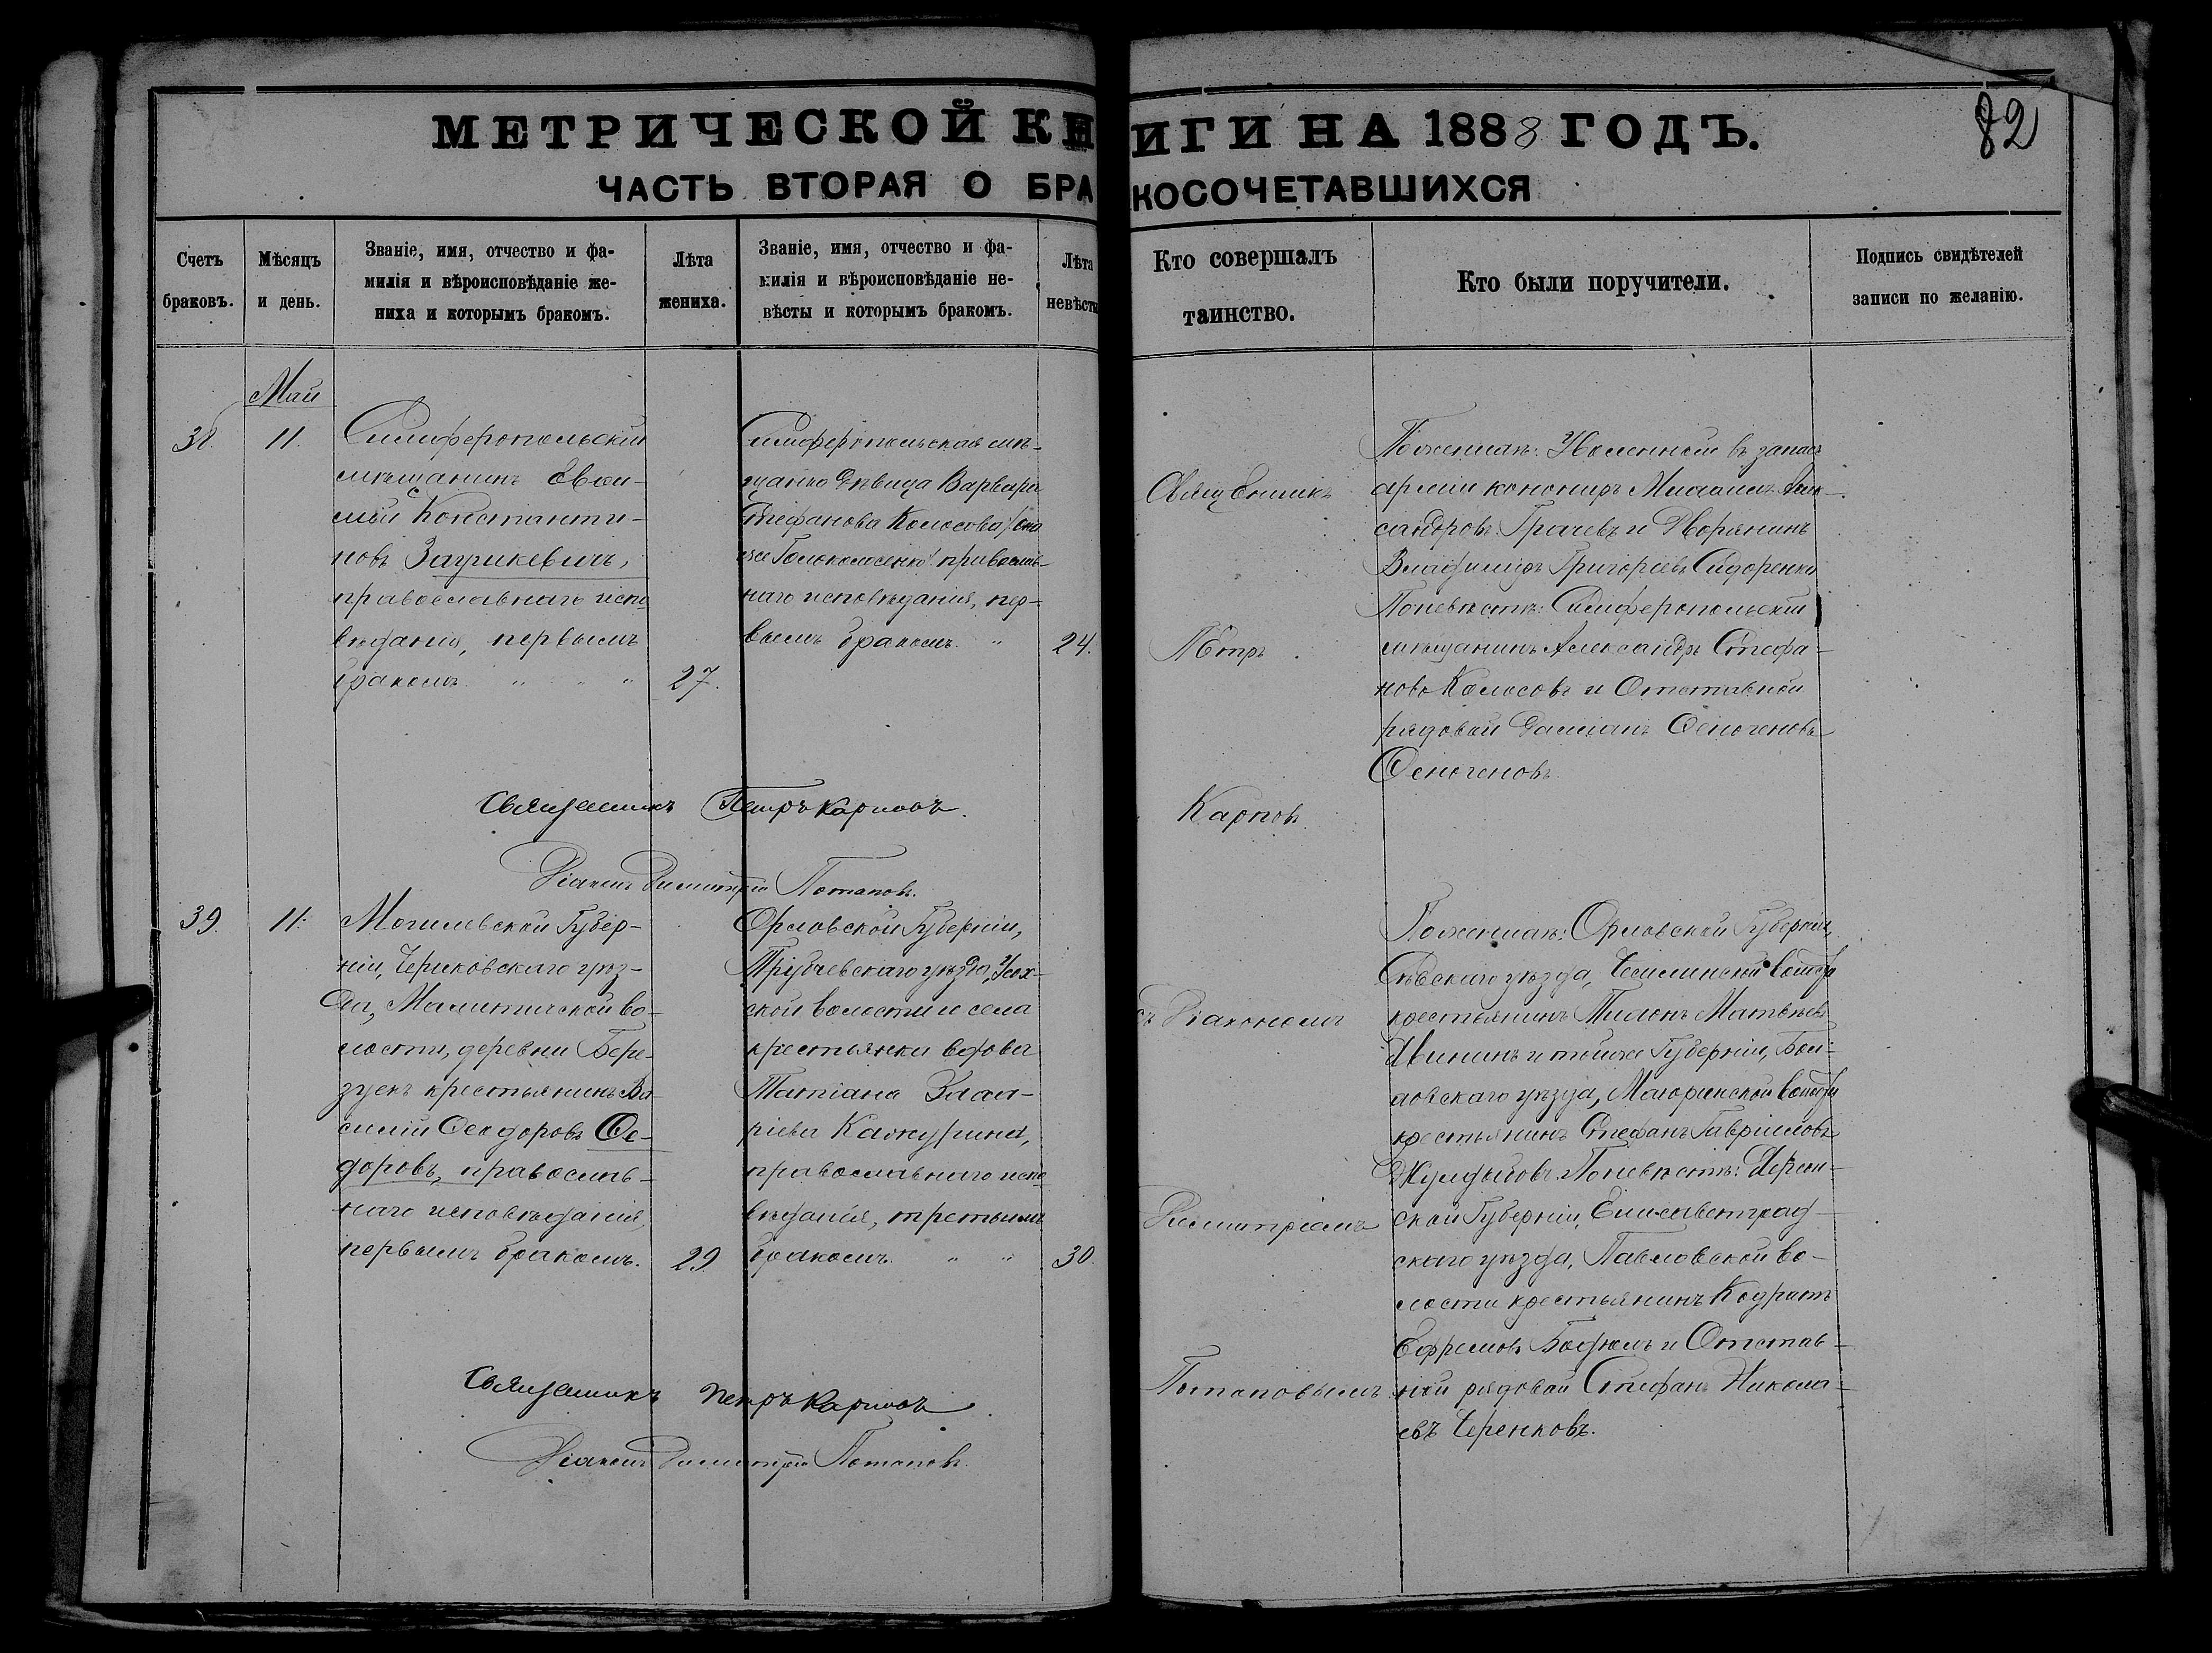 МЕТРИЧЕСКОЙ КНИГИ НА 1888 ГОДЪ.
82
ЧАСТЬ ВТОРАЯ О БРАКОСОЧЕТАВШИХСЯ
Счетъ браковъ.
Мѣсяцъ и день.
Званіе, имя, отчество и фамилія и вѣроисповѣданіе жениха и которымъ бракомъ.
Лѣта жениха.
Званіе, имя, отчество и фамилія и вѣроисповѣданіе невѣсты и которымъ бракомъ.
Лѣта невѣсты
Кто совершалъ таинство.
Кто были поручители.
Подпись свидѣтелей записи по желанію.
Май
38.
11.
Симферопольскій
мѣщанинъ Евѳи-
мій Константи-
новъ
православнаго испо
вѣданія, первымъ
бракомъ. " " "
27.
Симферопольская мѣ-
щанка дѣвица Варвара
Стефанова Колосова /она
же Голоколосенко/ православ-
наго исповѣданія, пер-
вымъ бракомъ. "
24.
Священникъ
Петръ
Карповъ
По женихѣ: Уволенный въ запасъ
арміи канониръ Михаилъ Алек-
сандровъ Грачевъ и Дворянинъ
Владиміръ Григорьевъ Сидоренко
По невѣстѣ: Симферопольскій
мѣщанинъ Александръ Стефа-
новъ Колосовъ и Отставной
рядовой Даміанъ Ѳеногеновъ
Ѳеногеновъ
Священникъ Петръ Карповъ.
Діаконъ Димитрій Потаповъ.
39.
11.
Могилевской Губер-
ніи, Чериковскаго уѣз-
да, Малятичской во-
лости, деревни Бере-
зукъ крестьянинъ Ва-
силій Ѳеодоровъ Ѳе-
доровъ, православ-
наго исповѣданія,
первымъ бракомъ.
29.
Орловской Губерніи,
Трубчевскаго уѣзда, Усох-
ской волости и села
крестьянка вдова
Татіана
православнаго испо
вѣданія, третьимъ
бракомъ. " "
30.
съ Діакономъ
Димитріемъ
Потаповымъ
По женихѣ: Орловской Губерніи,
Сѣвскаго уѣзда,
крестьянинъ Тихонъ Матвѣевъ
и тойже Губерніи, Бол-
ховскаго уѣзда,
крестьянинъ Стефанъ Гавріиловъ
По невѣстѣ: Херсон-
ской Губерніи, Елисаветград-
скаго уѣзда, Павловской во-
лости крестьянинъ Кодратъ
Ефремовъ и Отстав-
ной рядовой Стефанъ Никола-
евъ Черенковъ.
Священникъ Петръ Карповъ
Діаконъ Димитрій Потаповъ.